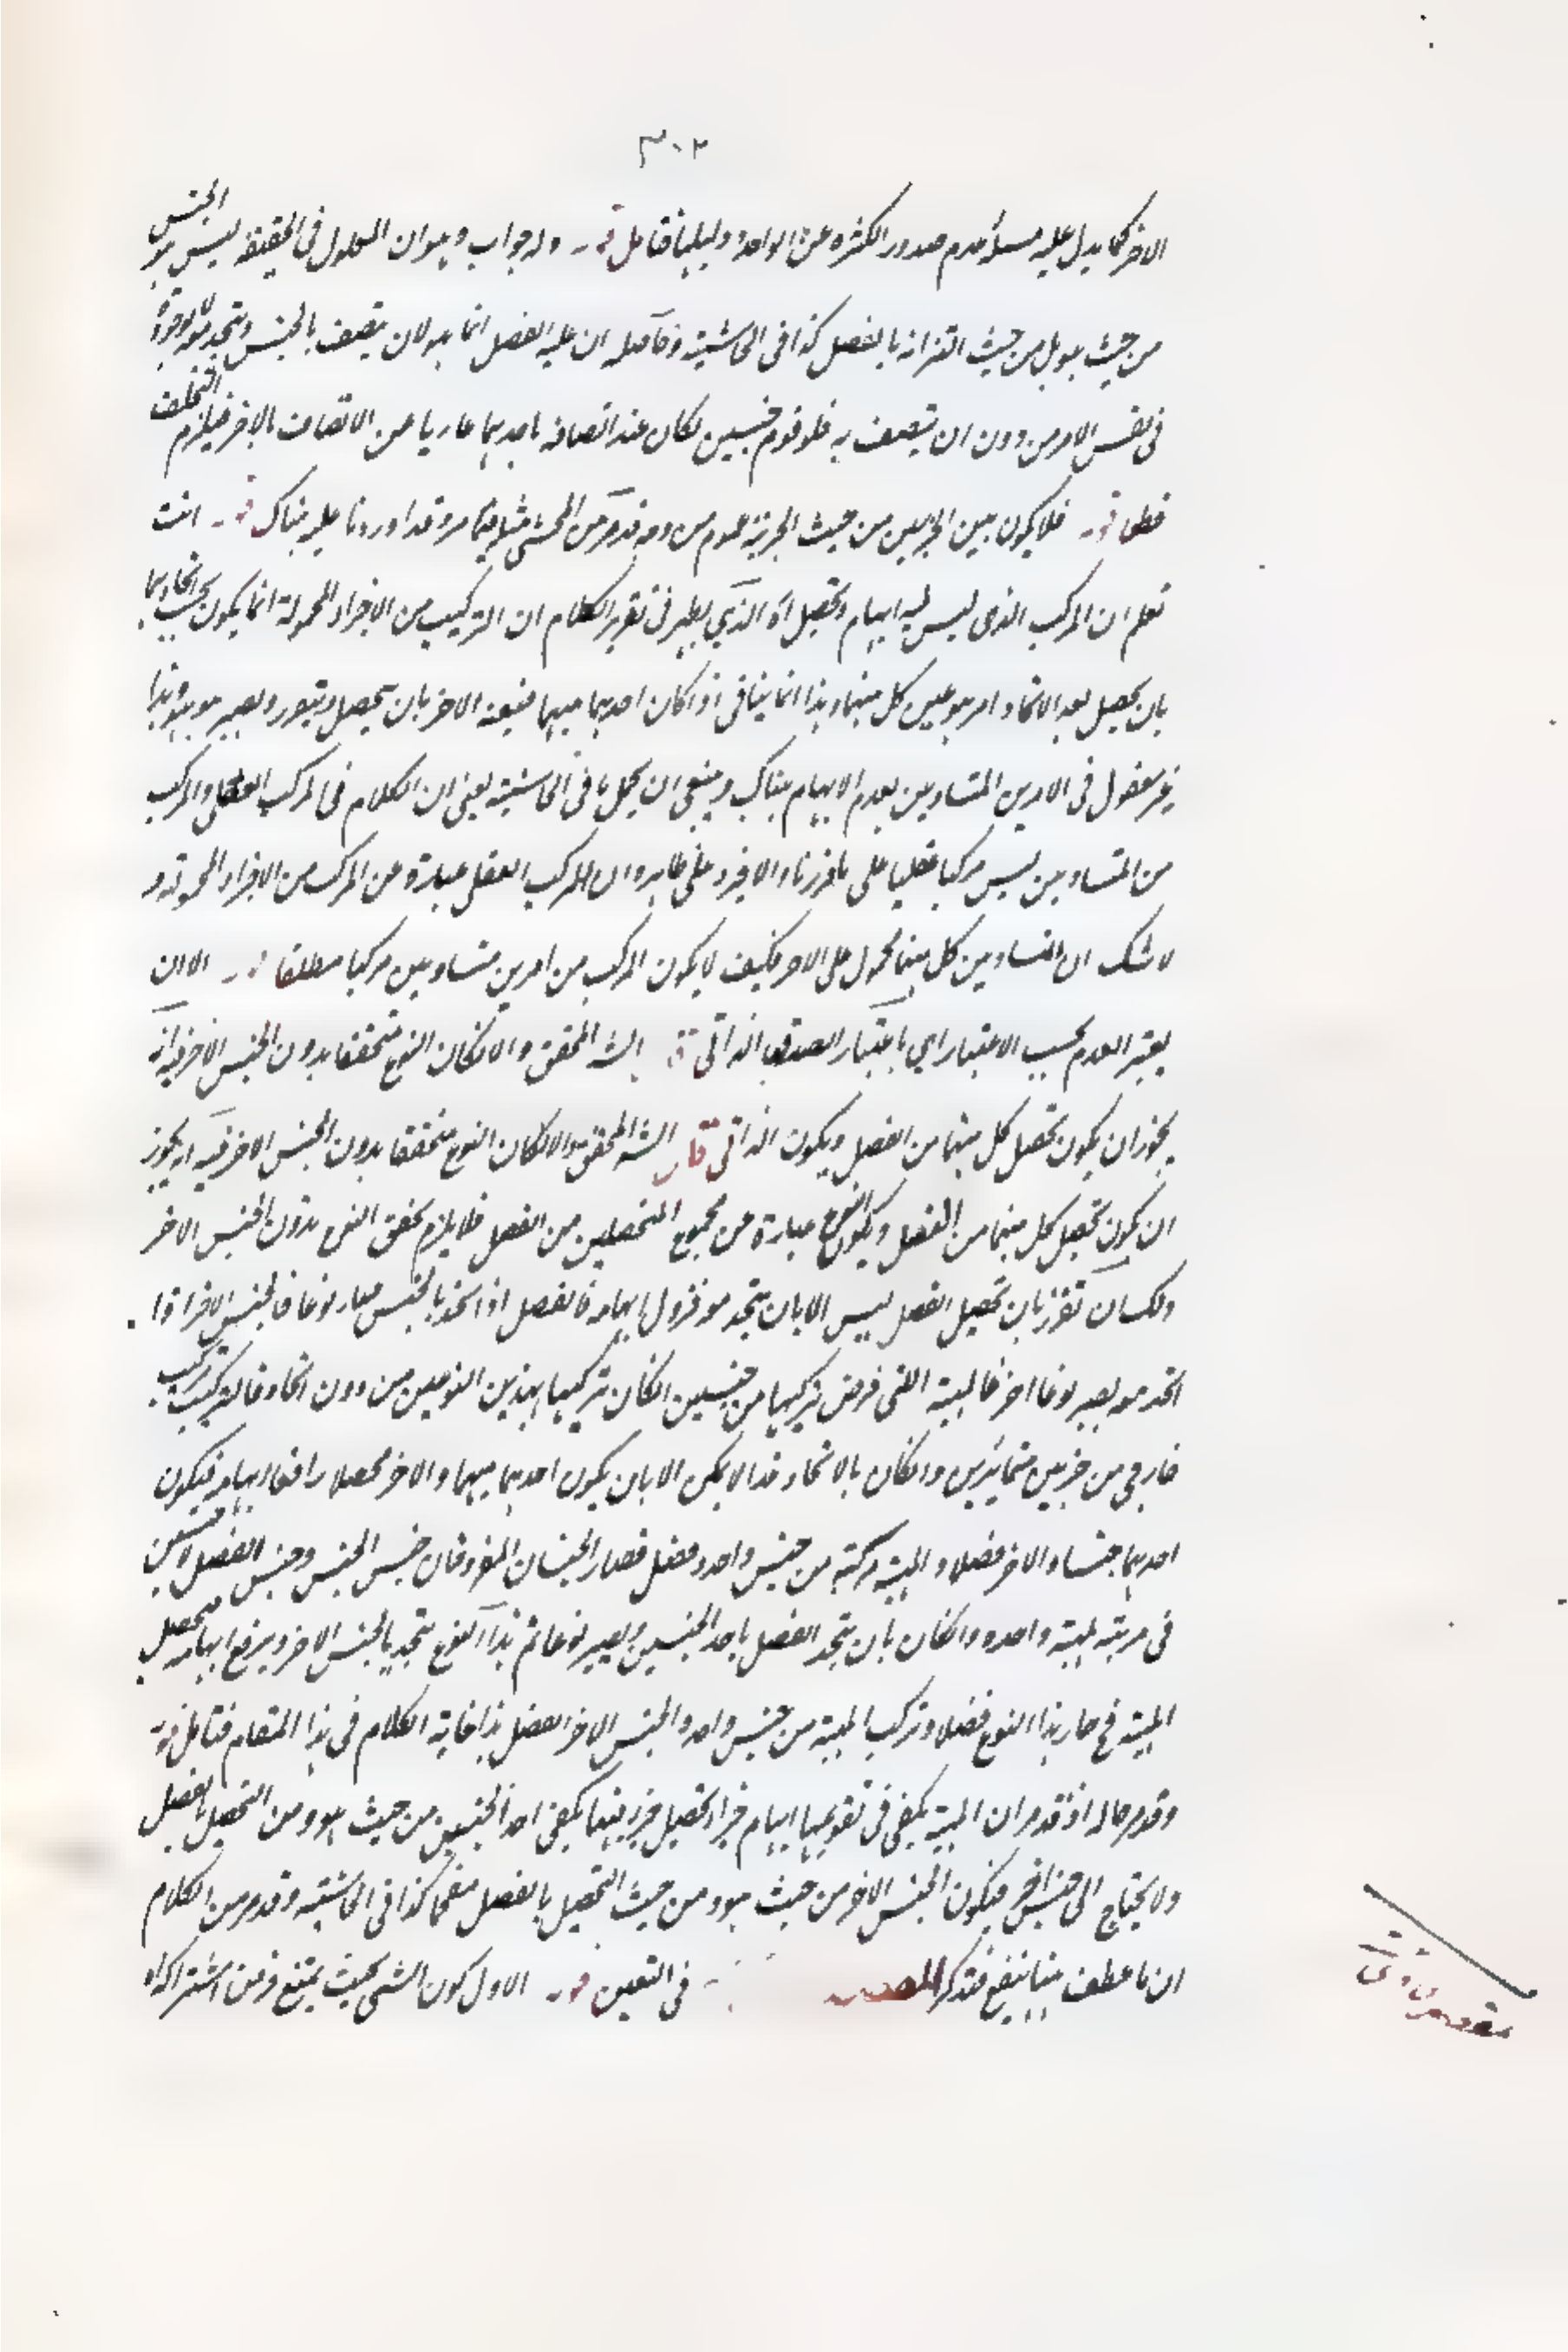 ٣٠٢
الاخر كما يدل عليه مسألة عدم صدور الكثرة عن الواحد ودليلها فتامل قوله وله جواب وهو ان المعلول فى الحقيقة ليس هو الجنس
من حيث هو بل من حيث اقترانه بالفصل كذا فى الحاشية وحاصله ان علية الفصل انما هو لان يتصف بالجنس ويتحد معه
فى نفس الامر من دون ان يتصف به فلو قوم جنسين لكان عند اتصافه باحدهما عاريا عن الاتصاف بالاخر فيلزم التخلف
قطعا قوله فلا يكون بين الجزئين من حيث الجزئية عموم من وجه قد مر من المحشى مثله فيما مر وقد اوردنا عليه هناك قوله انت
تعلم ان المركب الذى ليس فيه ابهام وتحصل اه الذى يظهر فى تقرير الكلام ان التركيب من الاجزاء المحمولة انما يكون بحسب اتحادهما
بان يحصل بعد الاتحاد امر هو عين كل منهما وهذا انما يتاتى اذا كان احدهما مبهما فيعنه الاخر بان يتحصل ويتنور ويصير هو هو وهذا
غير معقول فى الامرين المتساويين لعدم الابهام هناك وينبغى ان يحمل ما فى الحاشية يعنى ان الكلام فى المركب العقلى والمركب
من المتساويين ليس مركبا عقليا على ما قررنا والا فيرد على ظاهره ان المركب العقلى عبارة عن المركب من الاجزاء المحمولة و
لا شك ان المتساويين كل منهما محمول على الاخر فكيف لا يكون المركب من امرين متساويين مركبا مطلقا قوله الا ان
يعتبر العدم بحسب الاعتبار اي باعتبار الصدق الذاتى قال الشه المحقق والا لكان النوع متحققا بدون الجنس الاخر فيه انه
يجوز ان يكون تحصل كل منهما من الفصل ويكون الذاتى قال الشه المحقق والا لكان النوع متحققا بدون الجنس الاخر فيه انه يجوز
ان يكون تحصل كل منهما من الفصل ويكون النوع عبارة عن مجموع المتحصلين من الفصل فلا يلزم تحقق النوع بدون الجنس الاخر
ولك ان تقرر بان تحصيل الفصل ليس الا بان يتحد معه فزول ابهامه فالفصل اذا اتحد بالجنس صار نوعا فالجنس الاخر اذا
اتحد معه يصير نوعا اخر فالمهية التى فرض تركبها من جنسين ان كان تركيبها بهذين النوعين من دون اتحاد فالتركيب تركيب
خارجى من جزئين متمايزين وان كان بالاتحاد فذا لا يمكن الا بان يكون احدهما مبهما والاخر محصلا رافعا لابهامه فيكون
احدهما جنسا والاخر فصلا والمهية مركبة من جنس واحد وفصل فصار الجنسان المفروضان جنس الجنس وجنس الفصل لا جنسين
فى مرتبة لمهية واحدة وان كان بان يتحد الفصل باحد الجنسين ويصير نوعا ثم هذا النوع يتحد بالجنس الاخر ويرفع ابهامه فيتحصل
المهية فح صار هذا النوع فصلا وتركب المهية من جنس واحد والجنس الاخر الفصل هذا غاية الكلام فى هذا المقام فتامل قوله
وقد مر حاله اذ قد مر ان المهية يكفى فى تقويمها ابهام جزء وتحصيل جزء فيها يكفى احد الجنسين من حيث هو ومن التحصيل بالفصل
ولا يحتاج الى جنس اخر فيكون الجنس الاخر من حيث هو ومن حيث التحصيل بالفصل منفكا كذا فى الحاشية وقد مر من الكلام
ان ما عطف هنا ينفع فتذكر المقصد فى التعين قوله الاول كون الشى بحيث يمتنع فرض اشتراكه